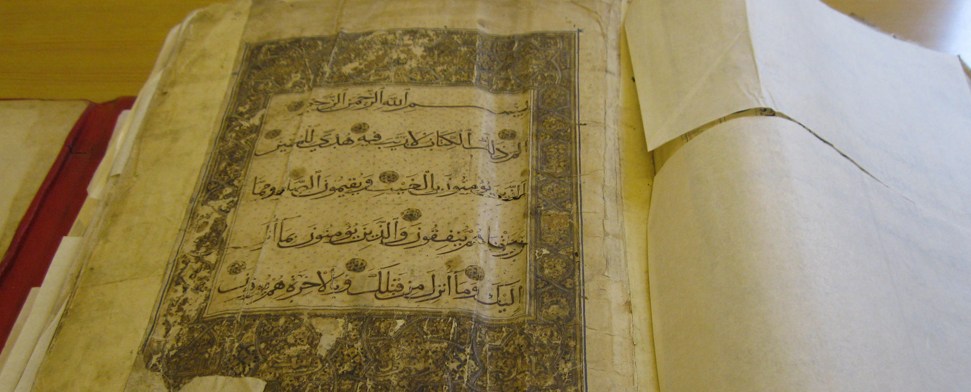 بسم الله الرحمن الرحيم
الم ذلك الكتاب لا ريب فيه هدى للمتقين
الذين يؤمنون بالغيب ويقيمون الصلوة ومما
رزقناهم ينفقون والذين يؤمنون بما أنزل
اليك وما أنزل من قبلك وبالآخرة هم يوقنون